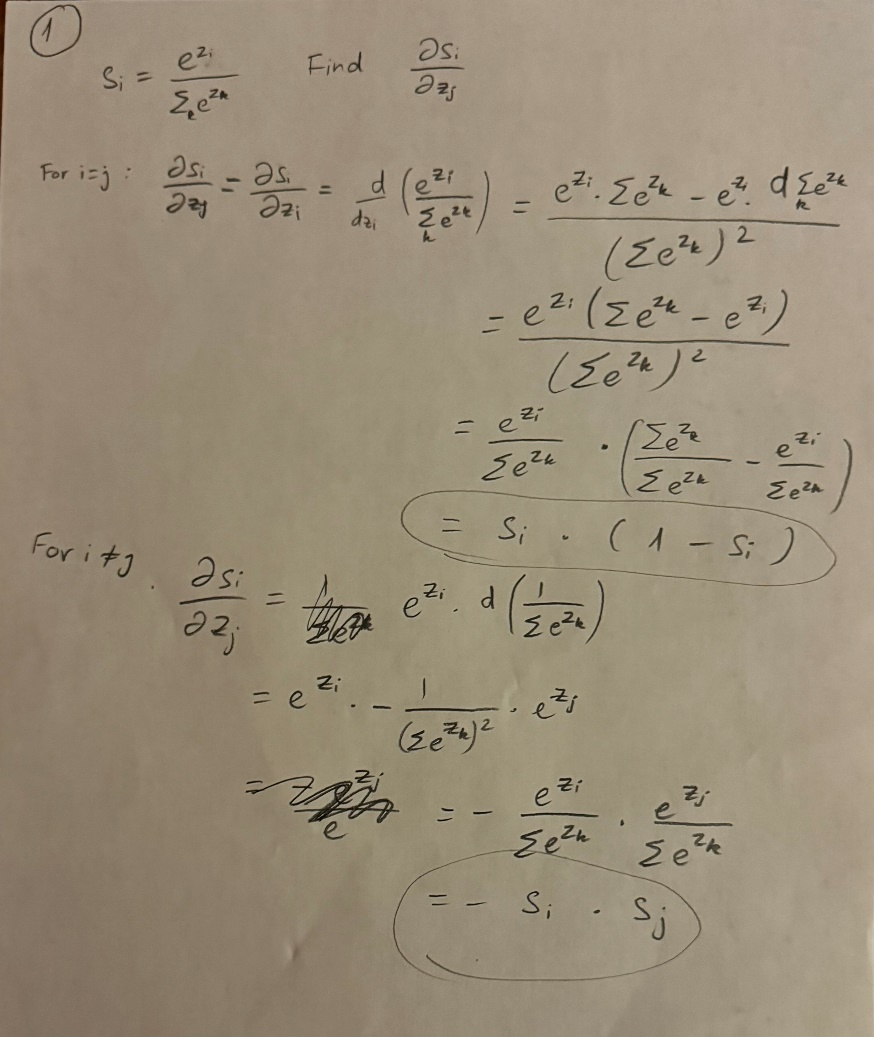 ①
Sᵢ = e^{zᵢ} / Σₖ e^{zₖ}   Find ∂Sᵢ/∂zⱼ
For i=j : ∂Sᵢ/∂zⱼ = ∂Sᵢ/∂zᵢ = d/dzᵢ ( e^{zᵢ} / Σₖ e^{zₖ} ) = ( e^{zᵢ} · Σe^{zₖ} - e^{zᵢ} · d Σₖ e^{zₖ} ) / (Σe^{zₖ})²
= e^{zᵢ} (Σe^{zₖ} - e^{zᵢ}) / (Σe^{zₖ})²
= e^{zᵢ} / Σe^{zₖ} · ( Σe^{zₖ} / Σe^{zₖ} - e^{zᵢ} / Σe^{zₖ} )
= Sᵢ · ( 1 - Sᵢ )
For i≠j . ∂Sᵢ/∂zⱼ = e^{zᵢ} . d ( 1 / Σe^{zₖ} )
= e^{zᵢ} · - 1 / (Σe^{zₖ})² · e^{zⱼ}
= - e^{zᵢ} / Σe^{zₖ} · e^{zⱼ} / Σe^{zₖ}
= - Sᵢ . Sⱼ